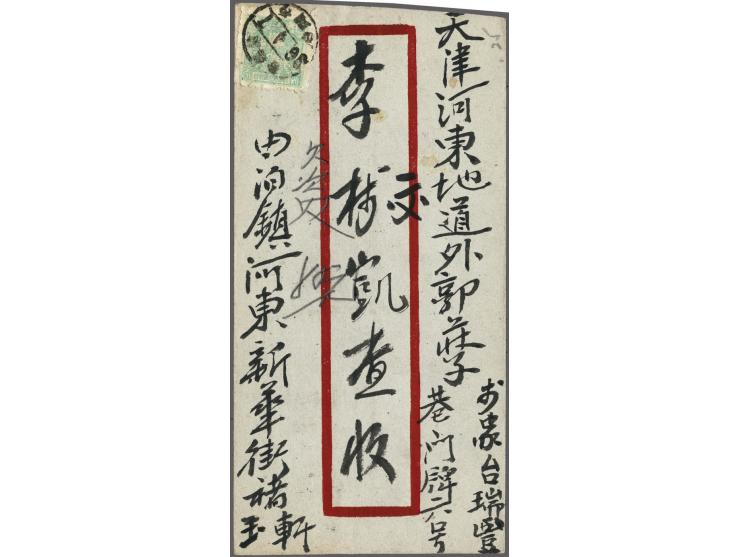 天津河東地道外郭莊子
台瑞豐
巷门牌六号
交
李樹凱查收
由泊鎮河東新華街褚玉軒